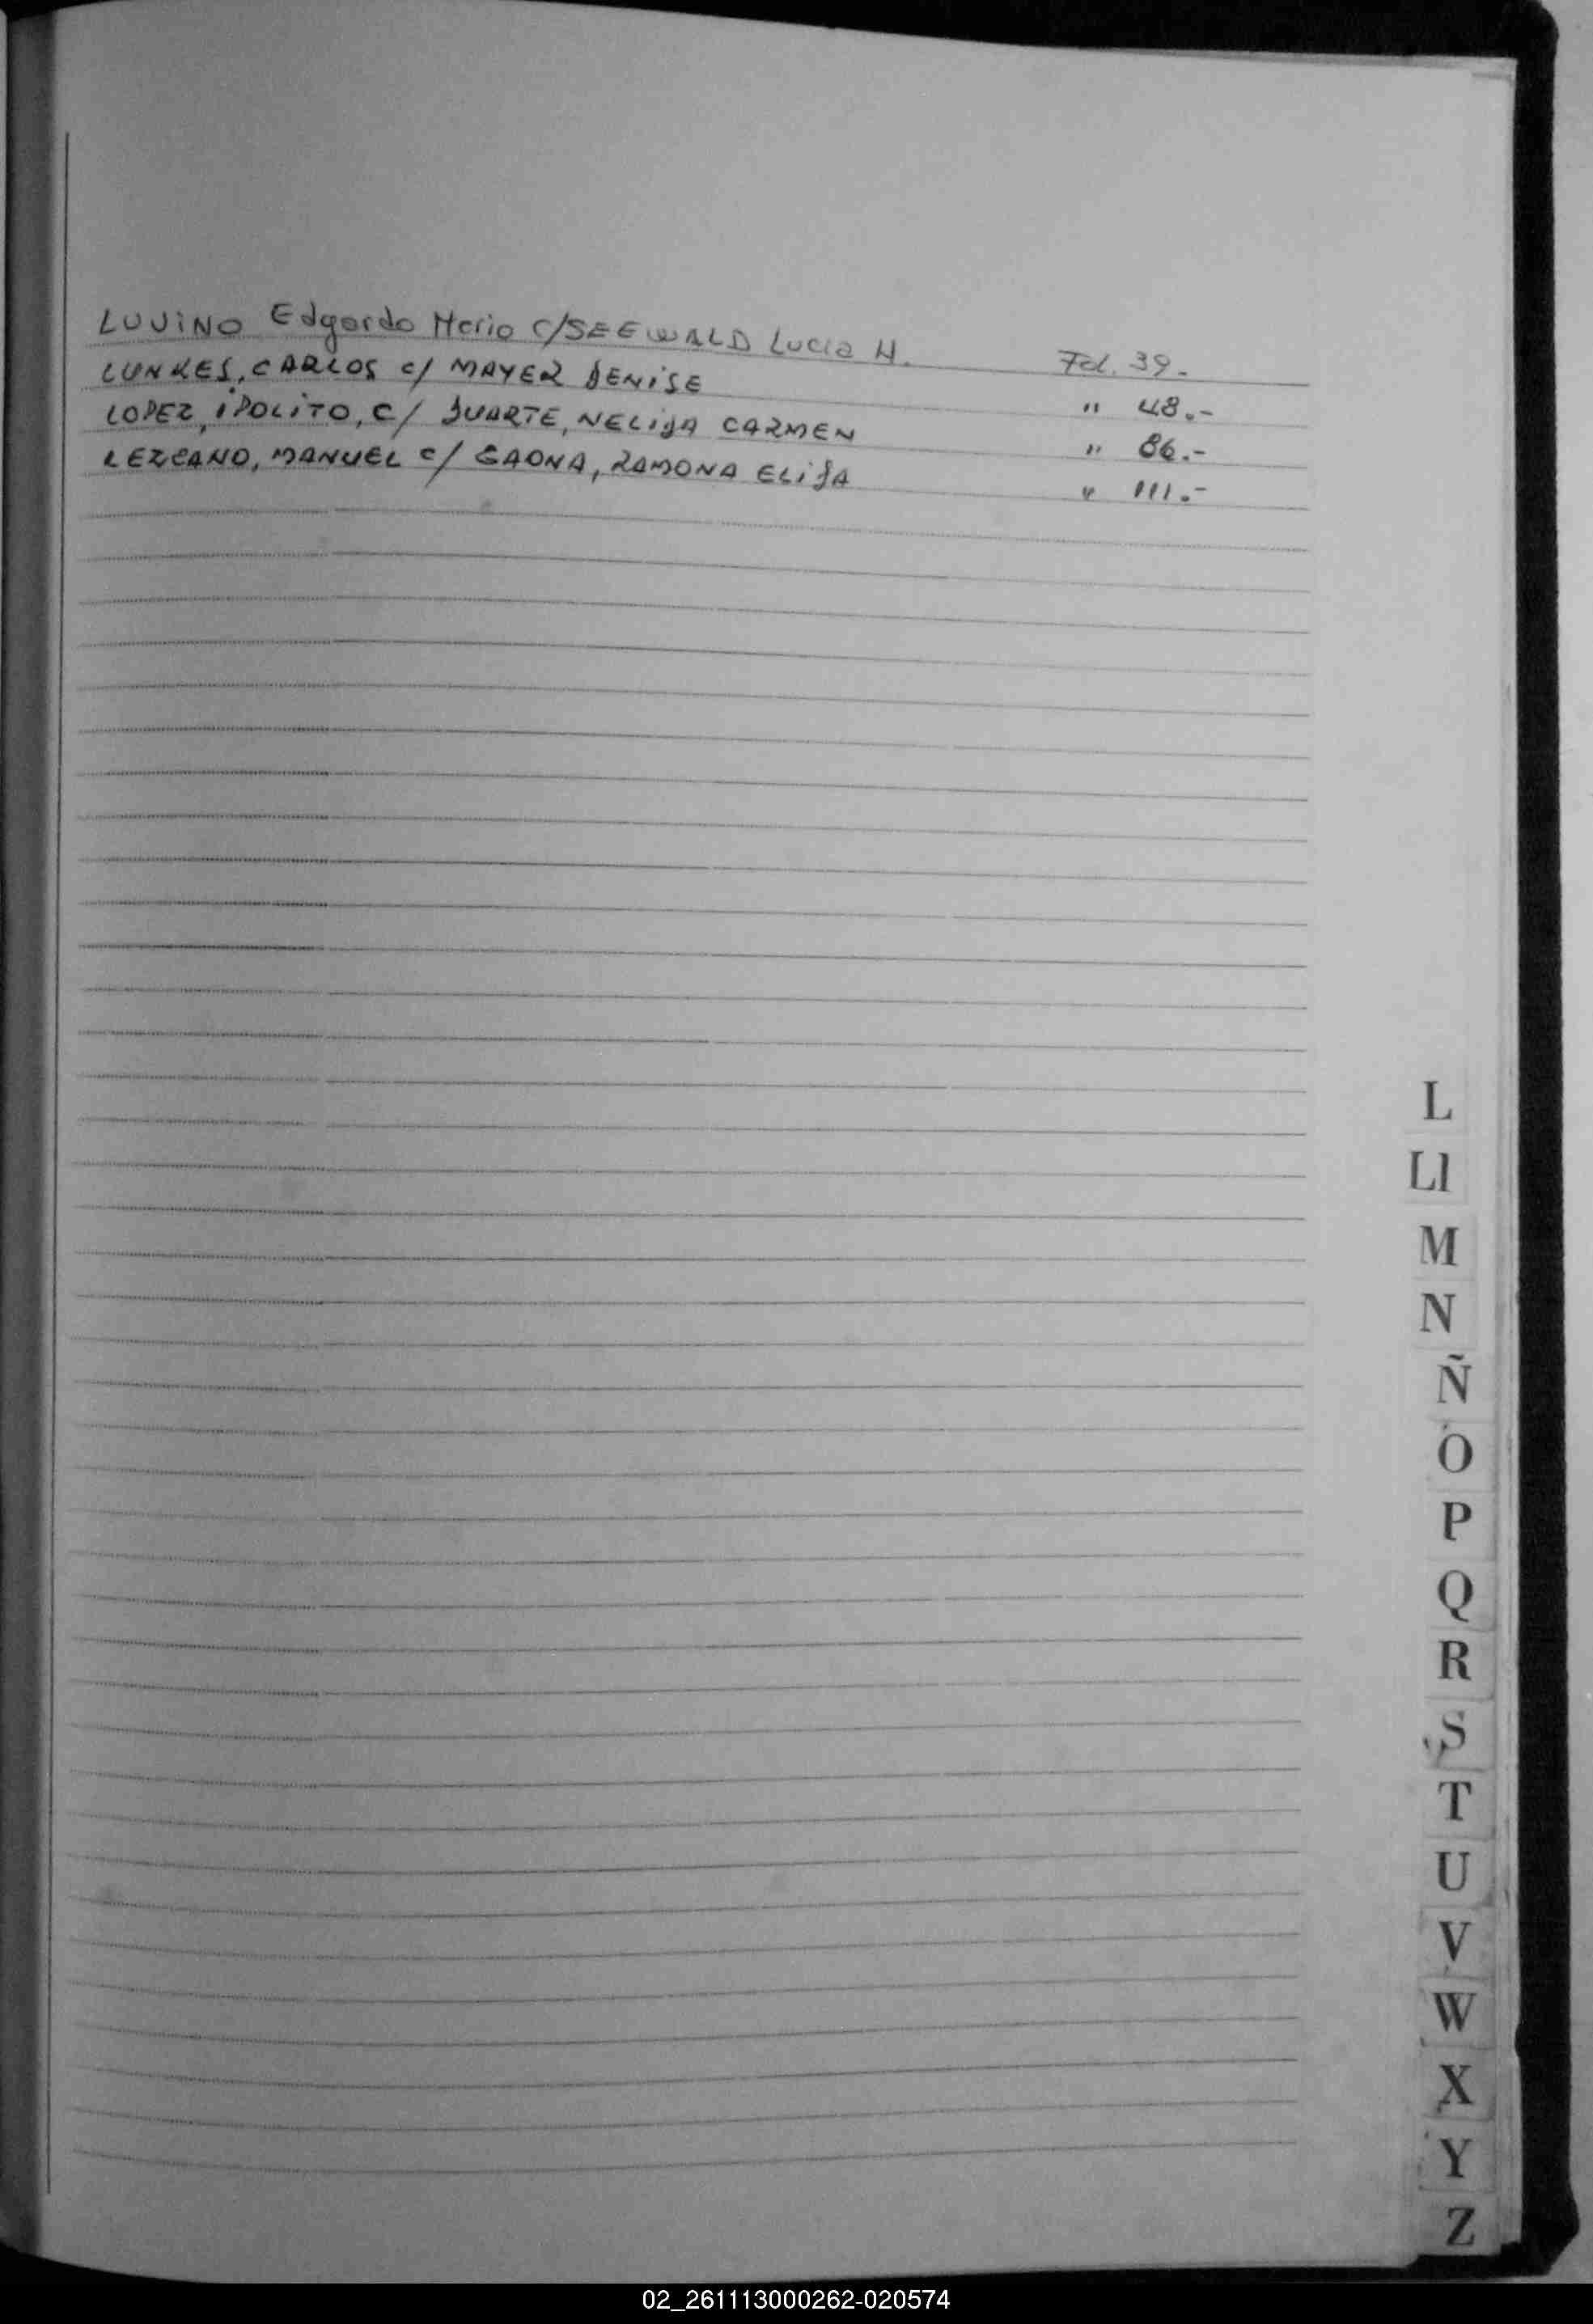 LUJINO Edgardo Mario C/SEEWALD Lucia H. Fol. 39.-
LUNKES, CARLOS c/ MAYER DENISE " 48.-
LOPEZ, iPOLiTO, C/ DUARTE, NELiDA CARMEN " 86.-
LEZCANO, MANUEL c/ GAONA, RAMONA ELiSA " 111.-
L
Ll
M
N
Ñ
O
P
Q
R
S
T
U
V
W
X
Y
Z
02_261113000262-020574